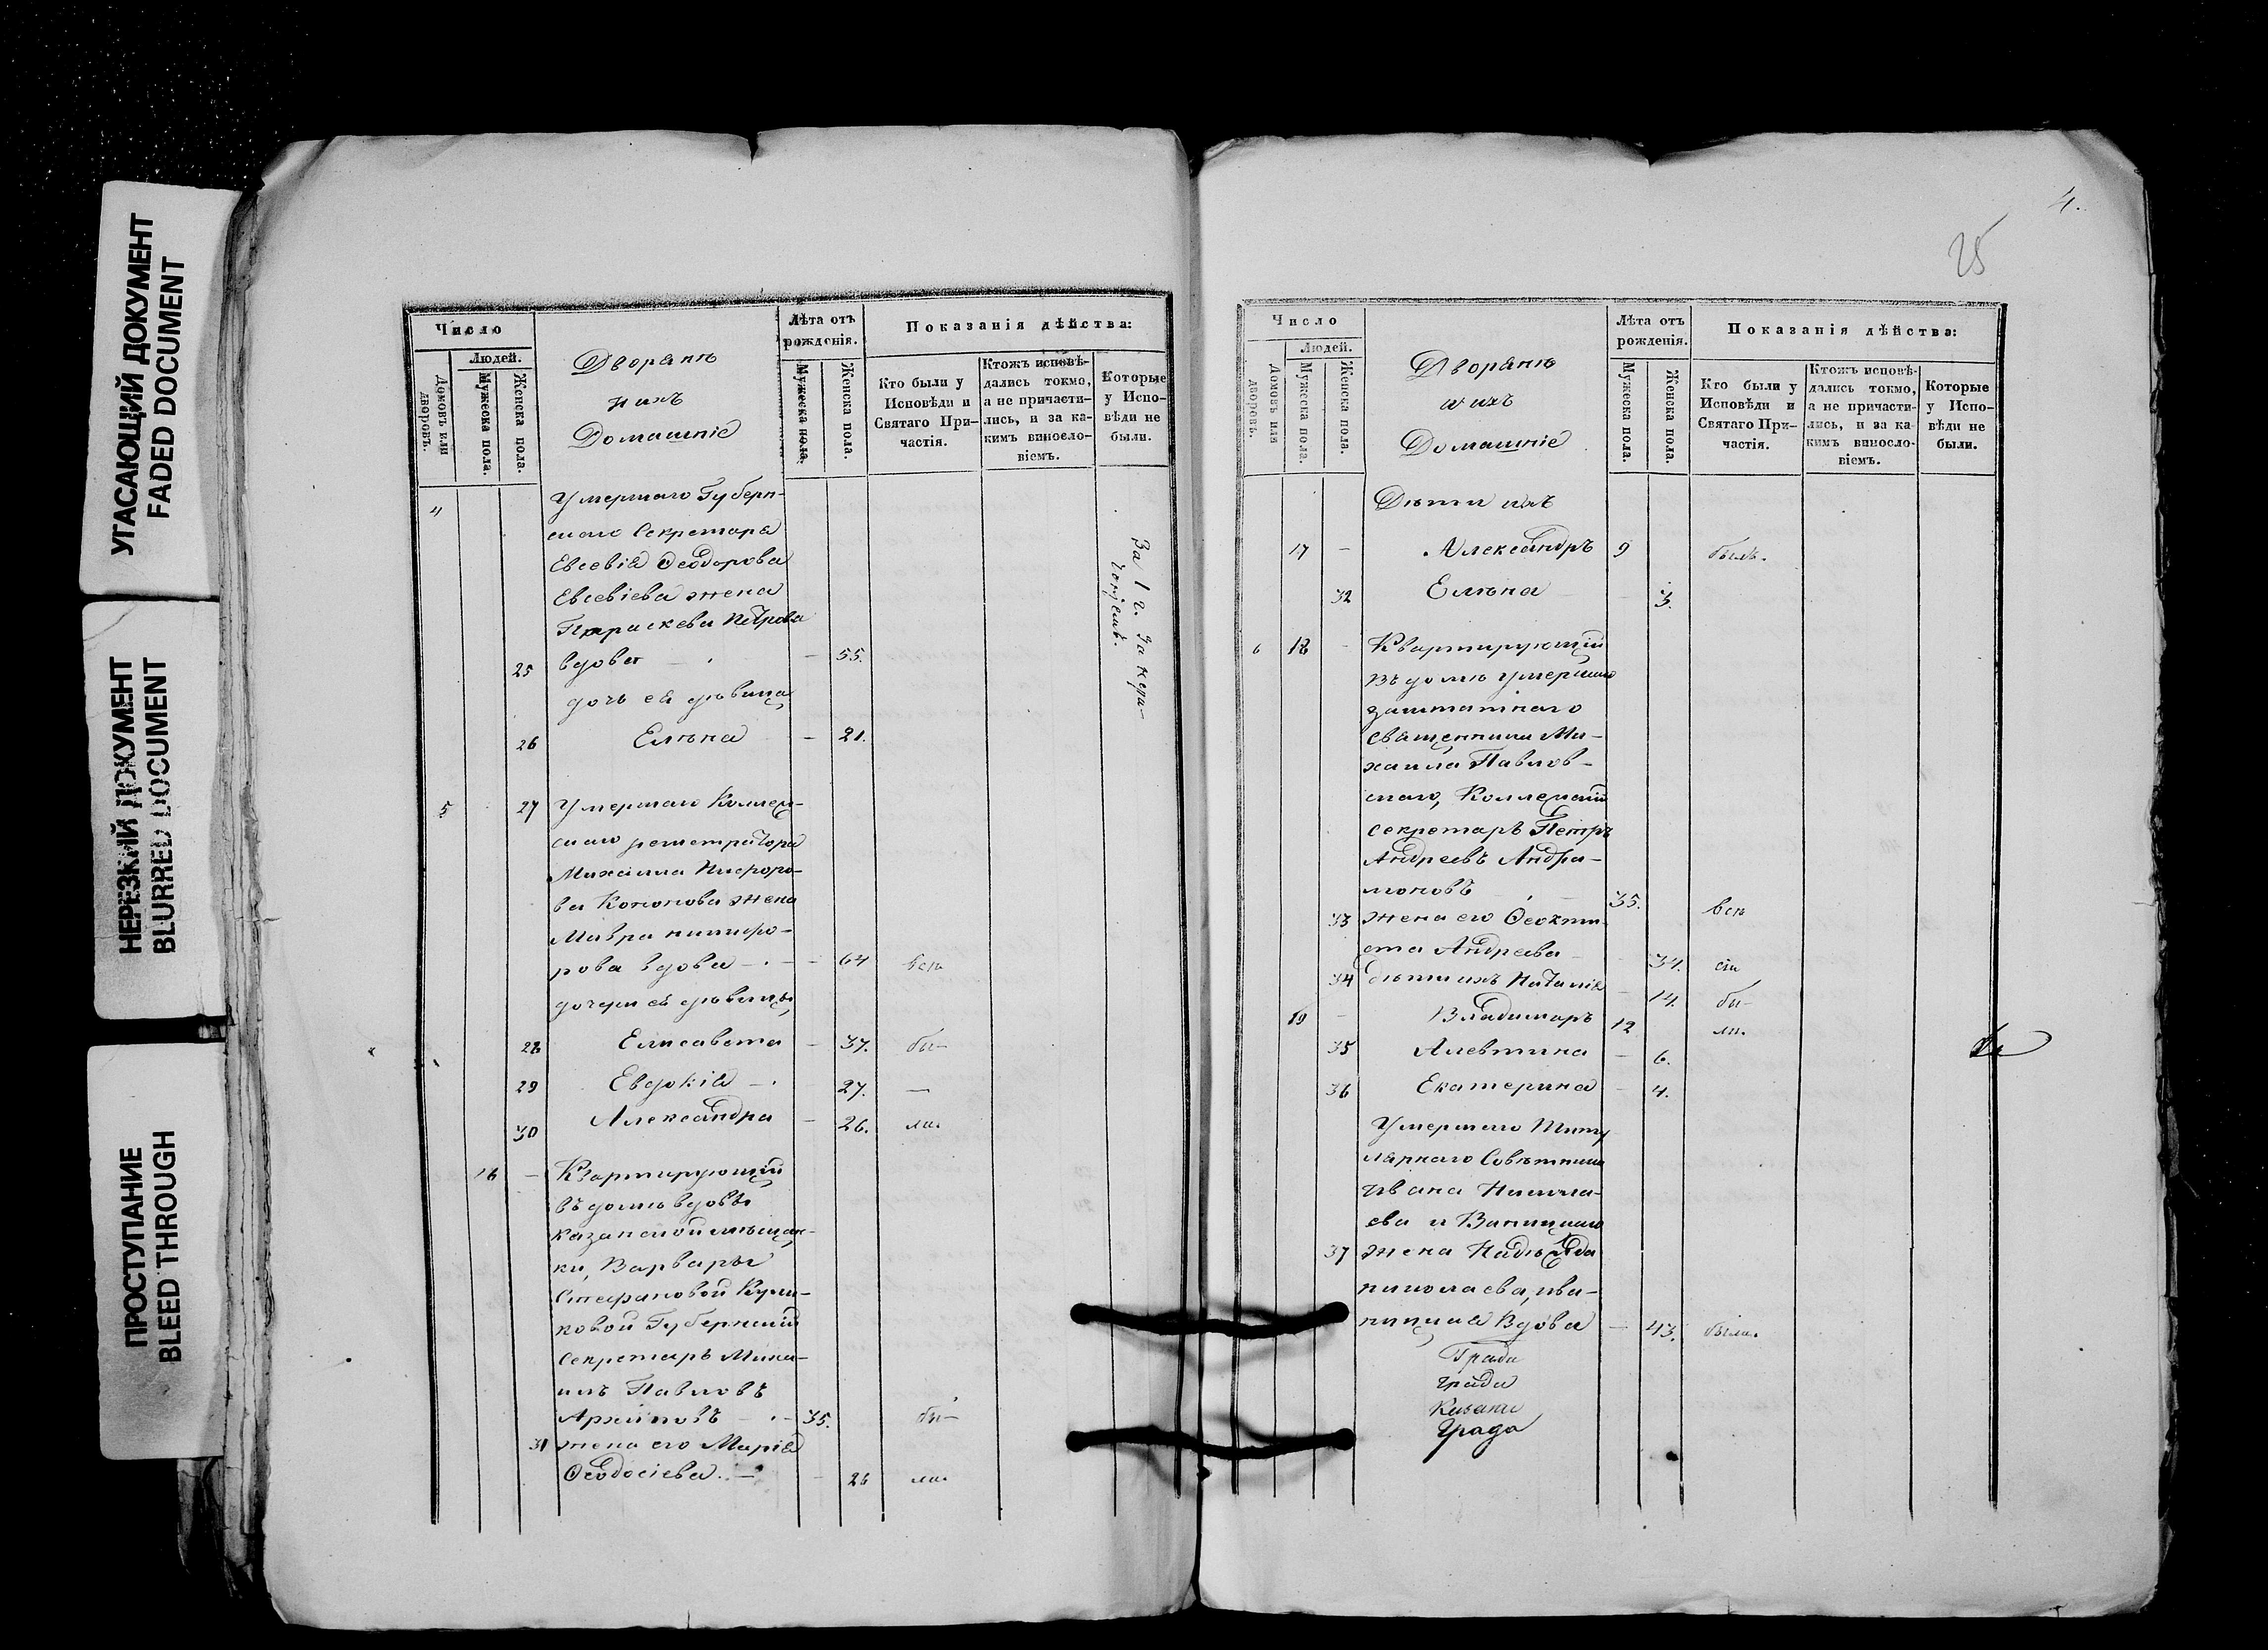 УГАСАЮЩИЙ ДОКУМЕНТ
FADED DOCUMENT
НЕРЕЗКИЙ ДОКУМЕНТ
BLURRED DOCUMENT
ПРОСТУПАНИЕ
BLEED THROUGH
Число
Людей.
Домовъ или дворовъ.
Мужеска пола.
Женска пола.
Дворяне
и ихъ
Домашніе
Лѣта отъ рожденія.
Мужеска пола.
Женска пола.
Показанія дѣйства:
Кто были у Исповѣди и Святаго Причастія.
Ктожъ исповѣдались токмо, а не причастились, и за какимъ винословіемъ.
Которые у Исповѣди не были.
4 Умершаго Губерн-
скаго Секретаря
Евсевія Ѳеодорова
Евсевіева жена
Параскева Петрова
25 вдова - 55.
дочь ея дѣвица
26 Елена - 21.
За 1 г.
5 27 Умершаго Коллеж-
скаго регистратора
Михаила Никоро-
ва Кононова жена
Мавра никифо-
рова вдова - 64 всѣ
дочери ея дѣвицы,
28 Елисавета - 37. бы-
29 Евдокія - 27. —
30 Александра - 26. ли.
16 - Квартирующій
въ домѣ вдовы
казанской мѣщан-
ки, Варвары
Стефановой Кули-
ковой Губернскій
Секретарь Миха-
илъ Павловъ
Архиповъ - 35. бы-
31 жена его Марія
Ѳеодосіева. - 26 ли.
4.
25
Число
Людей.
Домовъ или дворовъ.
Мужеска пола.
Женска пола.
Дворяне
и ихъ
Домашніе
Лѣта отъ рожденія.
Мужеска пола.
Женска пола.
Показанія дѣйства:
Кто были у Исповѣди и Святаго Причастія.
Ктожъ исповѣдались токмо, а не причастились, и за какимъ винословіемъ.
Которые у Исповѣди не были.
Дѣти ихъ
17 - Александръ 9 былъ.
32 Елена - 3.
6 18 - Квартирующій
въ домѣ умершаго
заштатнаго
священника Ми-
хаила Павлов-
скаго, Коллежскій
секретарь Петръ
Андреевъ
35. всѣ
33 жена его Ѳеокти-
ста Андреева 34. сіи
34 дѣти ихъ Наталія - 14. бы-
19 - Владимиръ 12 ли.
35 Алевтина - 6.
36 Екатерина - 4.
Умершаго Титу
лярнаго Совѣтника
Ивана Никола-
ева
37 жена Надежда
николаева,
Вдова - 43. была.
Града
града
Казани
Града